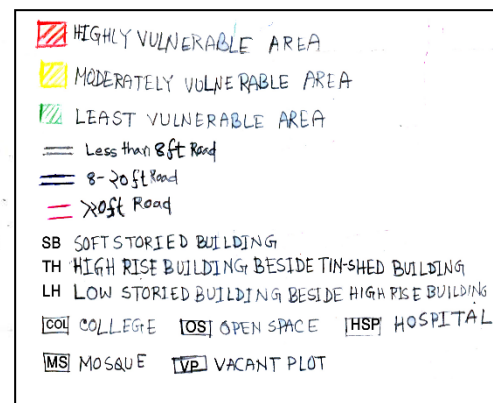 HIGHLY VULNERABLE AREA
MODERATELY VULNERABLE AREA
LEAST VULNERABLE AREA
Less than 8ft Road
8-20ft Road
>20ft Road
SB SOFT STORIED BUILDING
TH HIGH RISE BUILDING BESIDE TIN-SHED BUILDING
LH LOW STORIED BUILDING BESIDE HIGH RISE BUILDING
COL COLLEGE OS OPEN SPACE HSP HOSPITAL
MS MOSQUE VP VACANT PLOT